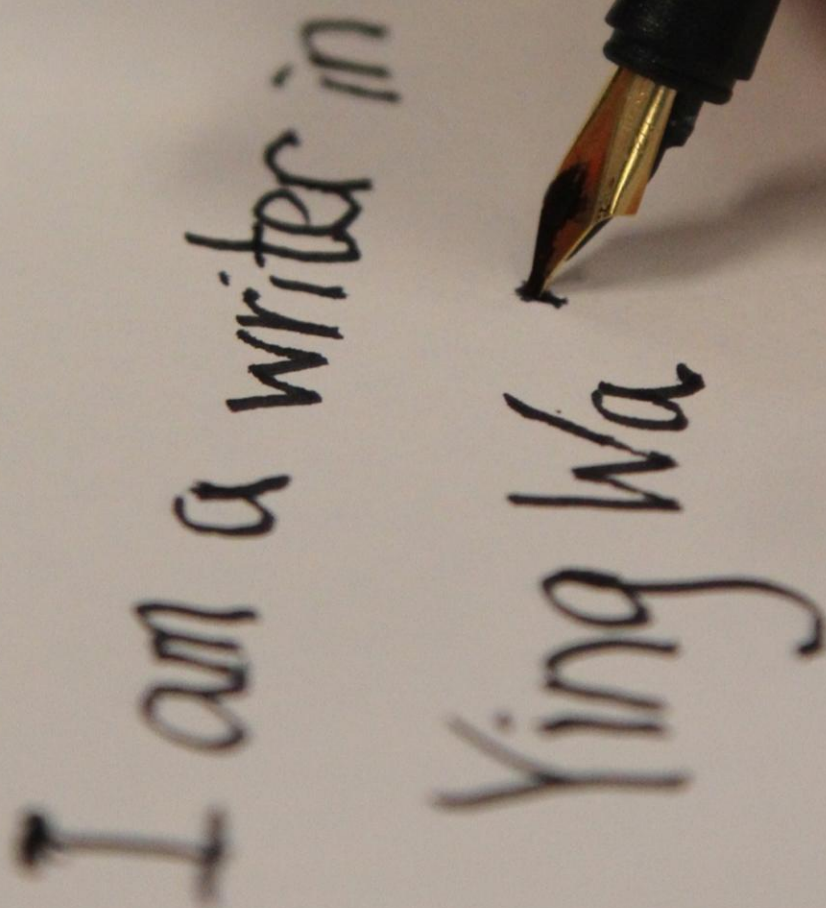 I am a writer in
Ying Wa